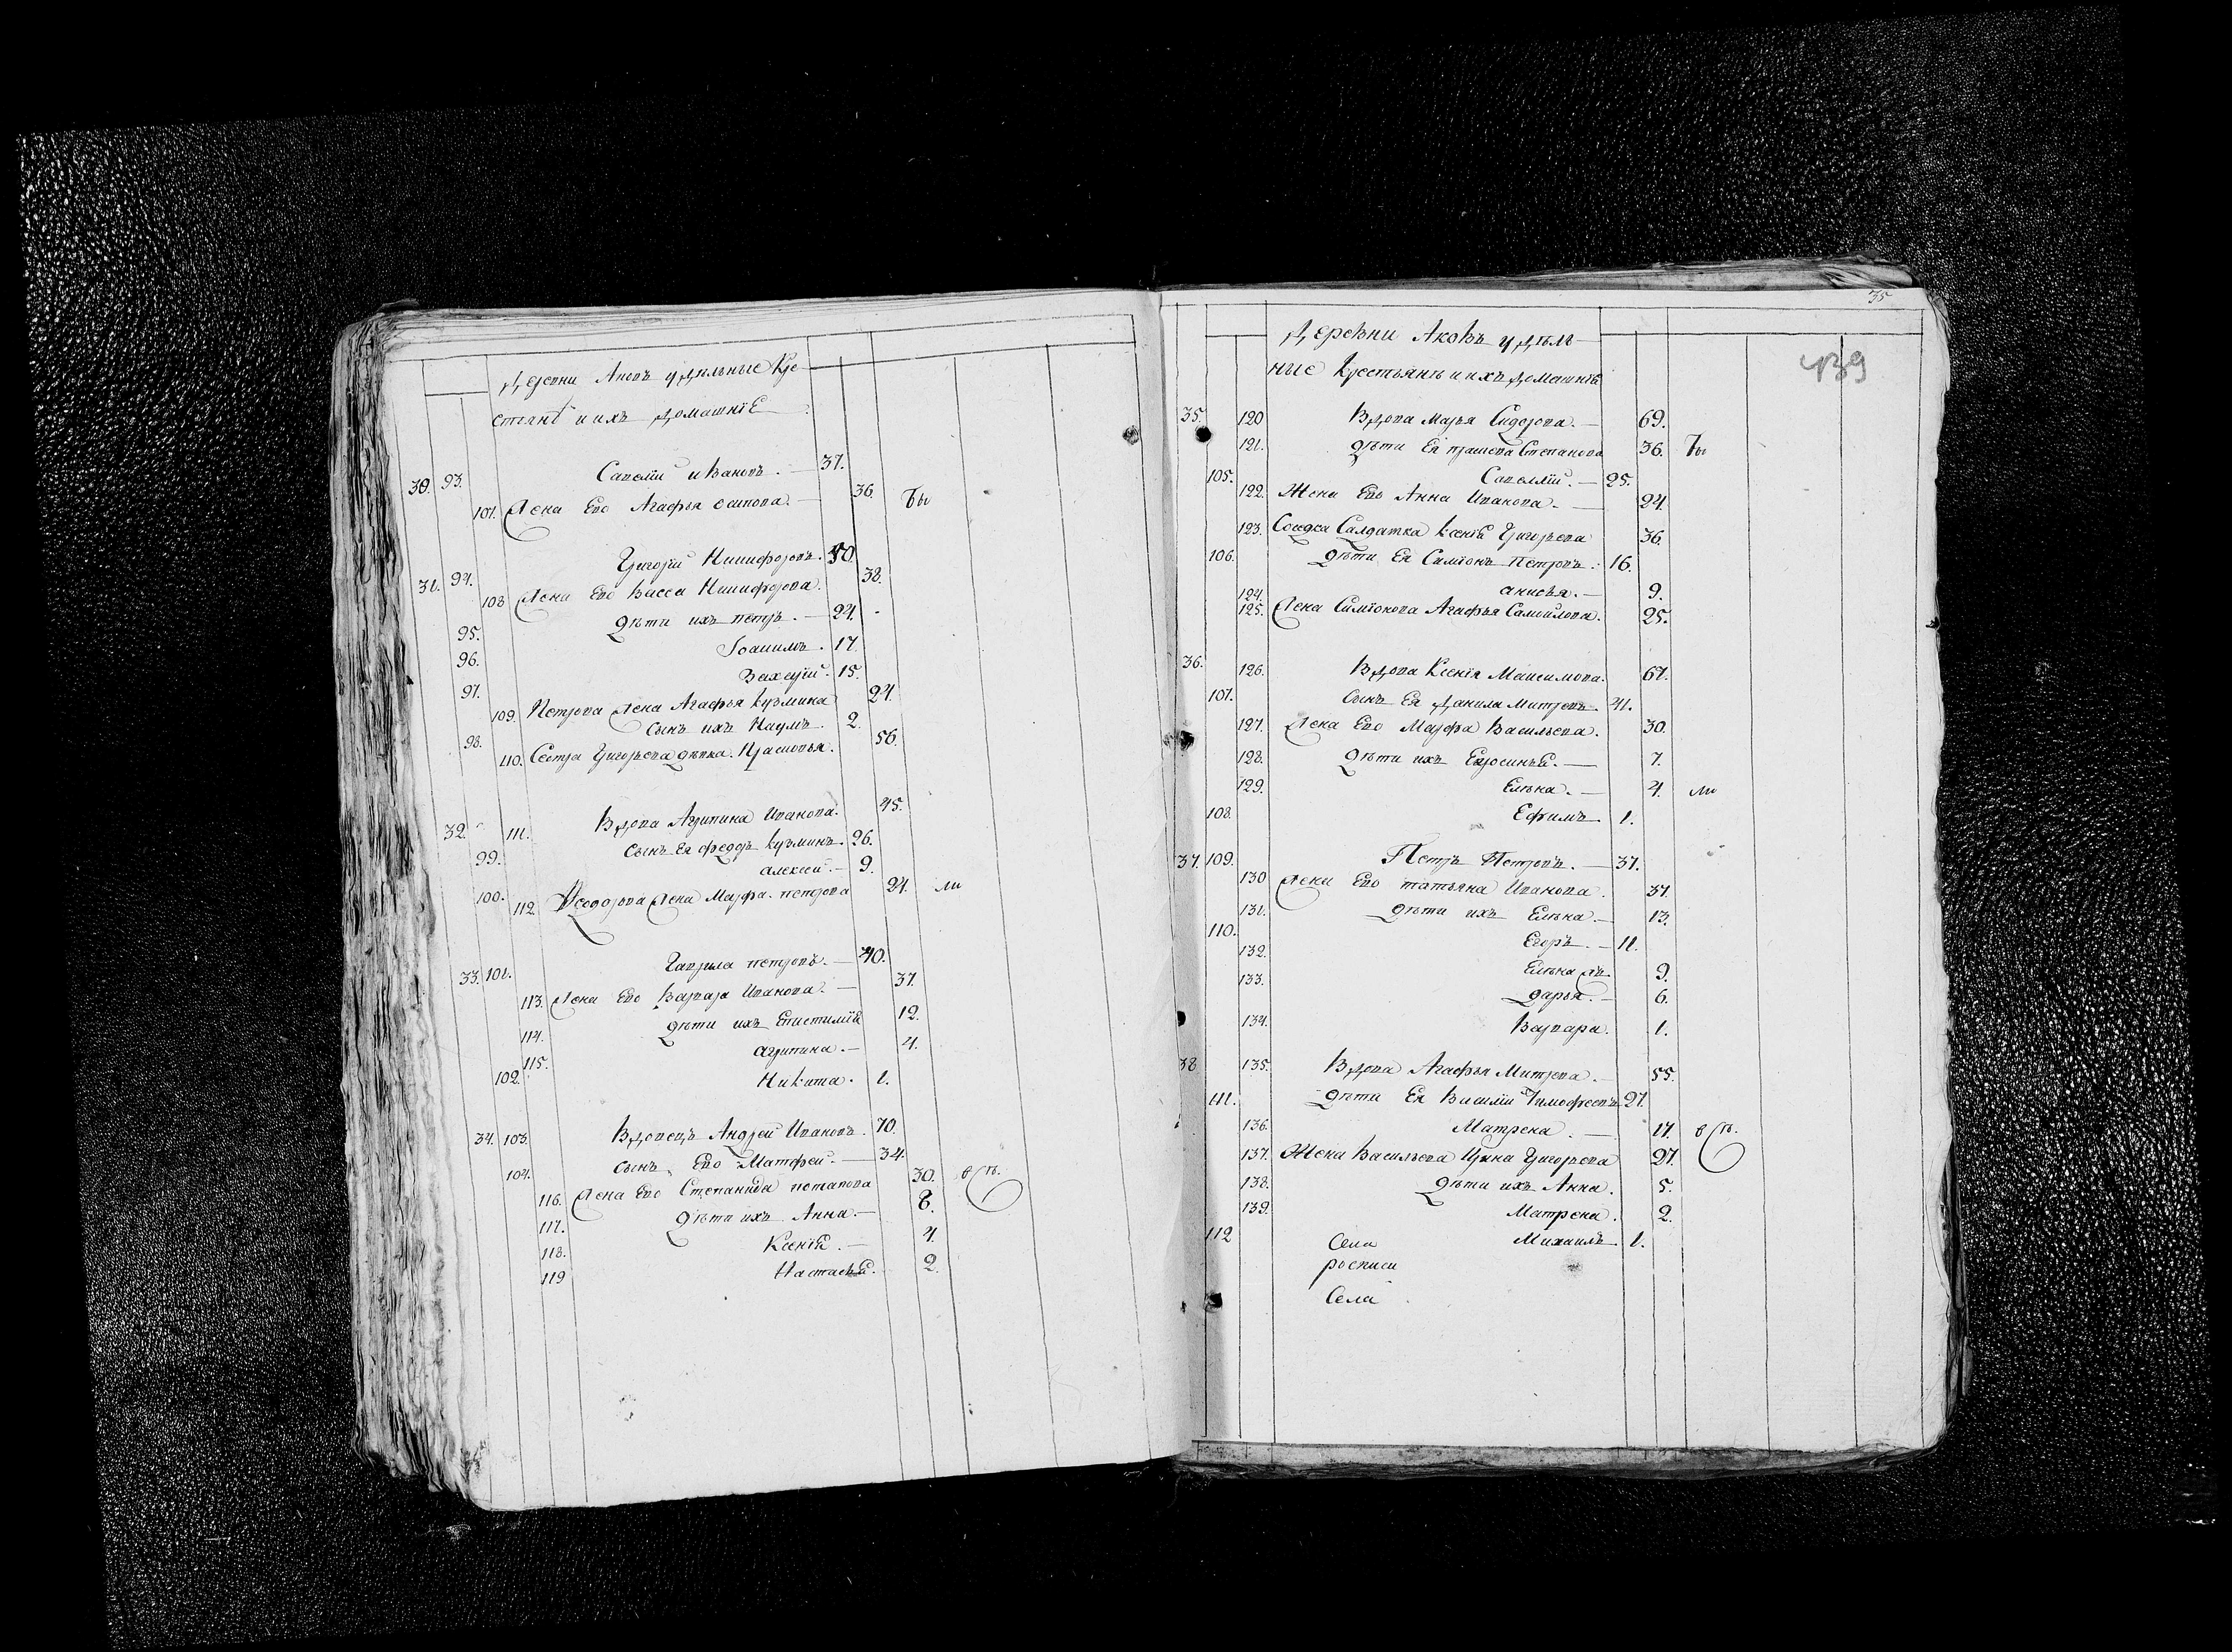 Деревни Аковъ удѣльные Кре-
стьянѣ и ихъ домашнiе
30. 93. Савелiй ивановъ. — 37.
107. Жена Ево Агафья осипова. — 36. бы
31. 94. Григорiй Никифоровъ. 50.
108 Жена Ево Васса Никифорова. 38.
95. Дѣти ихъ петръ. — 24.
96. Iоакимъ. 17.
97. Захарiй. 15.
109. Петрова Жена Агафья кузмина 24.
98. Сынъ ихъ Наумъ. 2.
110. Сестра Григорьева дѣвка. Прасковья. 56.
32. 111. Вдова Агрипина Иванова. 45.
99. Сынъ Ея федоръ кузминъ. 26.
100. алексей. — 9.
112 Феодорова Жена Марфа. петрова 24. ли
33. 101. Гаврила петровъ. — 40.
113. Жена Ево Варвара Иванова. — 37.
114. Дѣти ихъ Епистимiя 12.
115. агрипина. — 4.
102. Никита. 1.
34. 103. Вдовецъ Андрей Ивановъ. 70.
104. Сынъ Ево Матфей. — 34.
116. Жена Ево Степанида потапова 30.
117. Дѣти ихъ Анна. — 8.
118. Ксенiя. — 4.
119 Настасья. 2.
35
439
Деревни Аковъ удѣль-
ные Крестьянѣ и ихъ домашнiе
35. 120 Вдова Марья Сидорова. — 69.
121. Дѣти Ея Степанова 36. бы
105. Савелiй. — 25.
122. Жена Ево Анна Иванова. — 24.
123. Солдатка ксенiя Григорьева 36.
106. Дѣти Ея Симiонъ Петровъ. 16.
124. анисья. — 9.
125. Жена Симiонова Агафья Самойлова. 25.
36. 126. Вдова Ксенiя Максимова. 67.
107. Сынъ Ея Данила Митревъ. 41.
127. Жена Ево Марфа Васильева. 30.
128. Дѣти ихъ — 7.
129. Елѣна. — 4. ли
108. Ефимъ. 1.
37. 109. Петръ Петровъ. — 37.
130 Жена Ево татьяна Иванова. 37.
131. Дѣти ихъ Елѣна. — 13.
110. Егоръ. — 11.
132. Елѣна 9.
133. Дарья. — 6.
134. Варвара. 1.
38 135. Вдова Агафья Митрева. — 55.
111. Дѣти Ея Василiй Тимофеевъ 27.
136. Матрена. — 17.
137. Жена Васильева Ирина Григорьева 27.
138. Дѣти ихъ Анна. 5.
139. Матрена. 2.
112 Села Михаилъ. 1.
росписи
Села